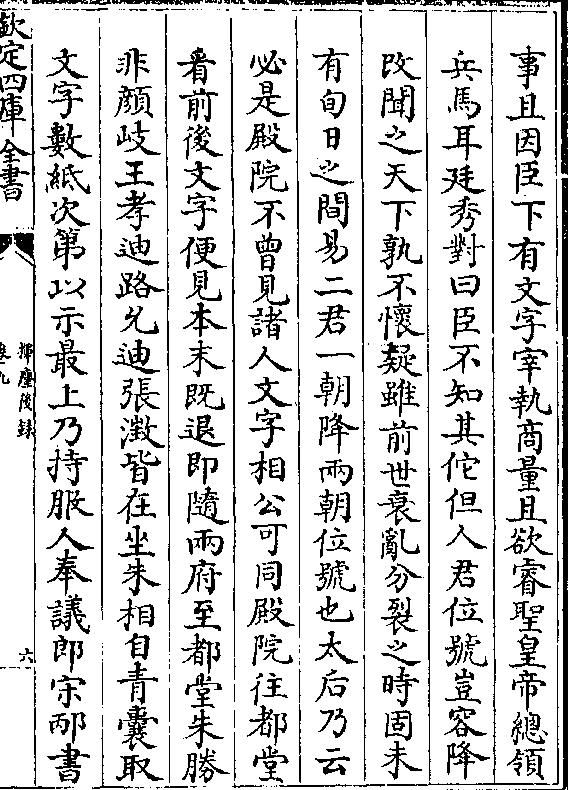 事且因臣下有文字宰執商量且欲睿聖皇帝總領
兵馬耳廷秀對曰臣不知其佗但人君位號豈容降
改聞之天下孰不懷疑雖前世衰亂分裂之時固未
有旬日之間易二君一朝降兩朝位號也太后乃云
必是殿院不曾見諸人文字相公可同殿院往都堂
看前後文字便見本末既退即隨兩府至都堂朱勝
非顔岐王孝迪路允迪張澂皆在坐朱相自青囊取
文字數紙次第以示最上乃持服人奉議郎宋邴書
欽定四庫全書
揮麈後録
卷九
六